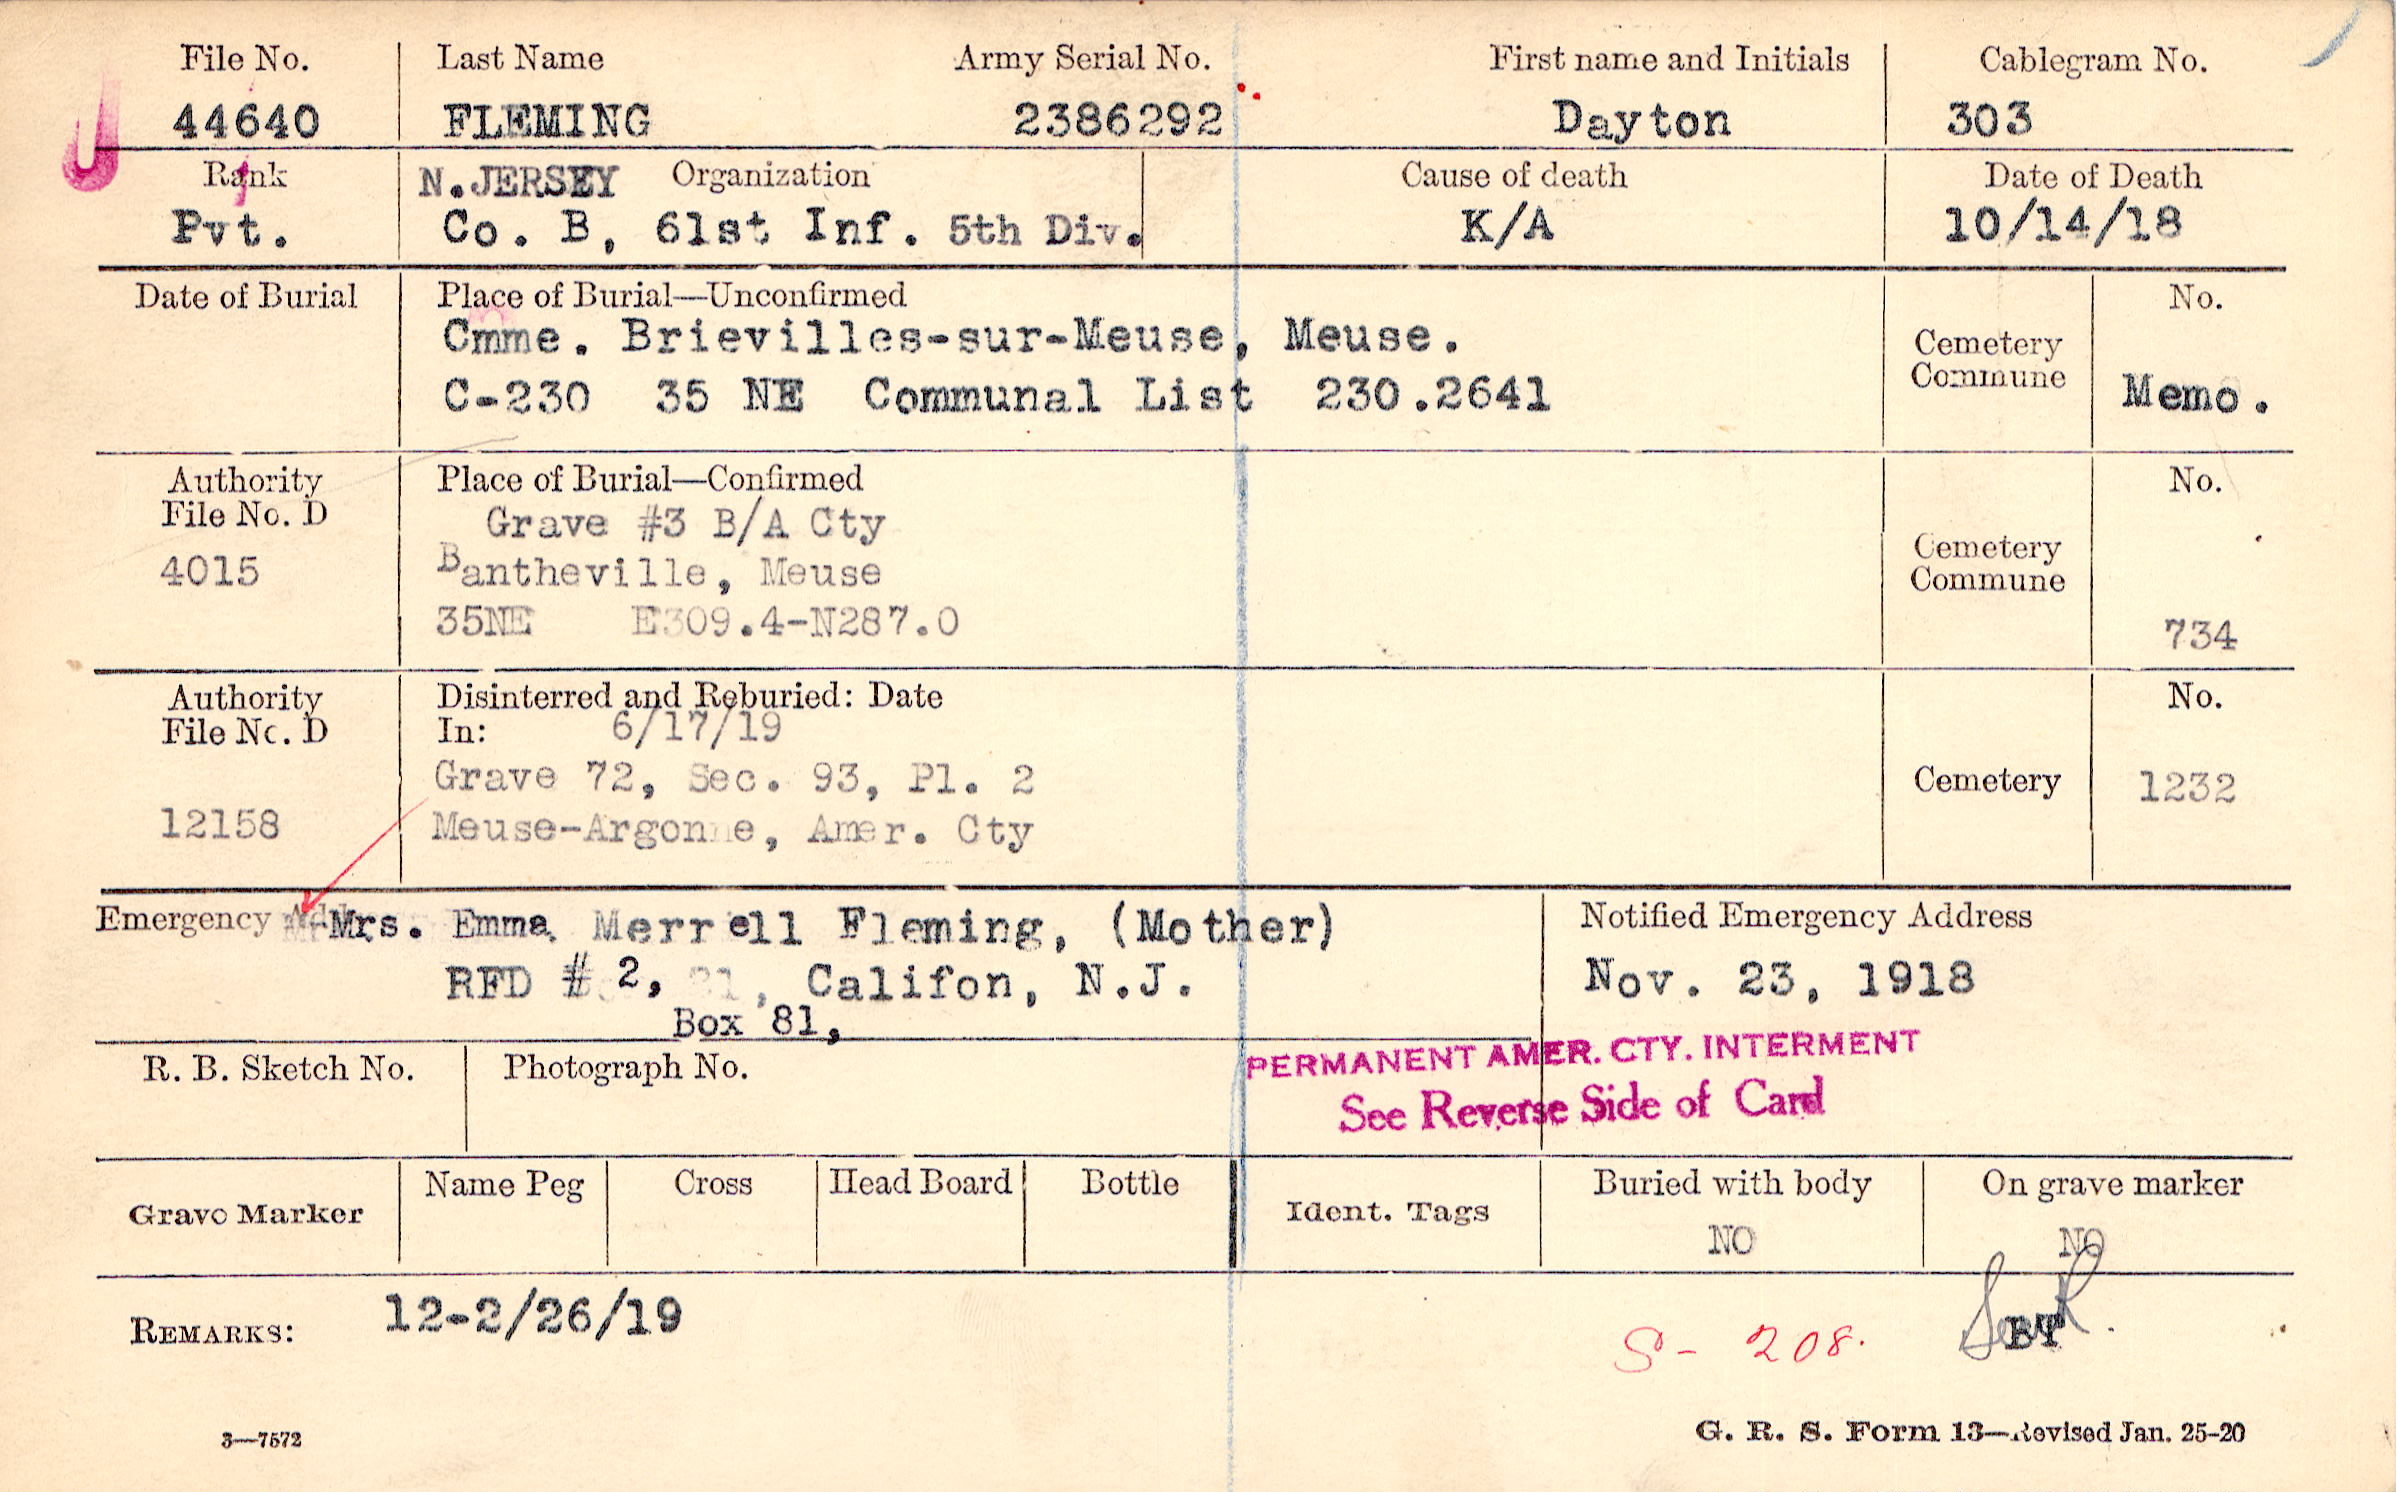 File No. Last Name Army Serial No. First name and Initials Cablegram No.
44640 FLEMING 2386292 Dayton 303
Rank N.JERSEY Organization Cause of death Date of Death
Pvt. Co. B, 61st Inf. 5th Div. K/A 10/14/18
Date of Burial Place of Burial—Unconfirmed No.
Cmme. Brievilles-sur-Meuse, Meuse.
Cemetery
Commune
C-230 35 NE Communal List 230.2641 Memo.
Authority Place of Burial—Confirmed No.
File No. D Grave #3 B/A Cty
4015 Bantheville, Meuse
Cemetery
Commune
35NE E309.4-N287.0 734
Authority Disinterred and Reburied: Date No.
File No. D In: 6/17/19
Grave 72, Sec. 93, Pl. 2 Cemetery 1232
12158 Meuse-Argonne, Amer. Cty
Emergency Mrs. Emma Merrell Fleming, (Mother) Notified Emergency Address
RFD # 2, , Califon, N.J. Nov. 23, 1918
Box 81,
R. B. Sketch No. Photograph No. PERMANENT AMER. CTY. INTERMENT
See Reverse Side of Card
Grave Marker Name Peg Cross Head Board Bottle Ident. Tags Buried with body On grave marker
NO NO
REMARKS: 12-2/26/19
S- 208. BT
3—7572 G. R. S. Form 13—Revised Jan. 25-20